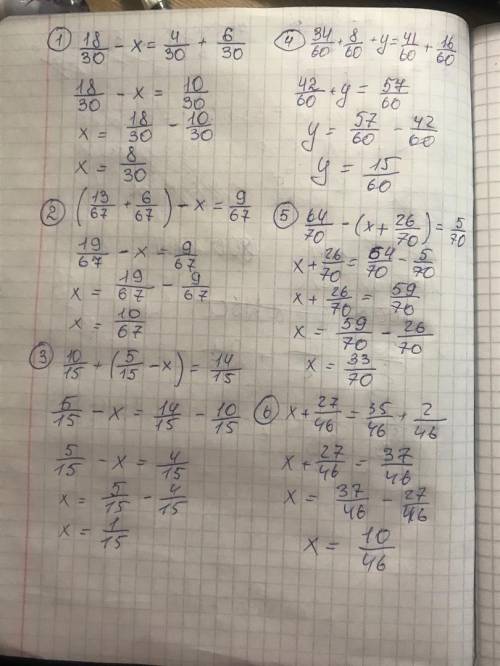 ① 18/30 - x = 4/30 + 6/30
18/30 - x = 10/30
x = 18/30 - 10/30
x = 8/30
② (13/67 + 6/67) - x = 9/67
19/67 - x = 9/67
x = 19/67 - 9/67
x = 10/67
③ 10/15 + (5/15 - x) = 14/15
5/15 - x = 14/15 - 10/15
5/15 - x = 4/15
x = 5/15 - 4/15
x = 1/15
④ 34/60 + 8/60 + y = 41/60 + 16/60
42/60 + y = 57/60
y = 57/60 - 42/60
y = 15/60
⑤ 64/70 - (x + 26/70) = 5/70
x + 26/70 = 64/70 - 5/70
x + 26/70 = 59/70
x = 59/70 - 26/70
x = 33/70
⑥ x + 27/46 = 35/46 + 2/46
x + 27/46 = 37/46
x = 37/46 - 27/46
x = 10/46